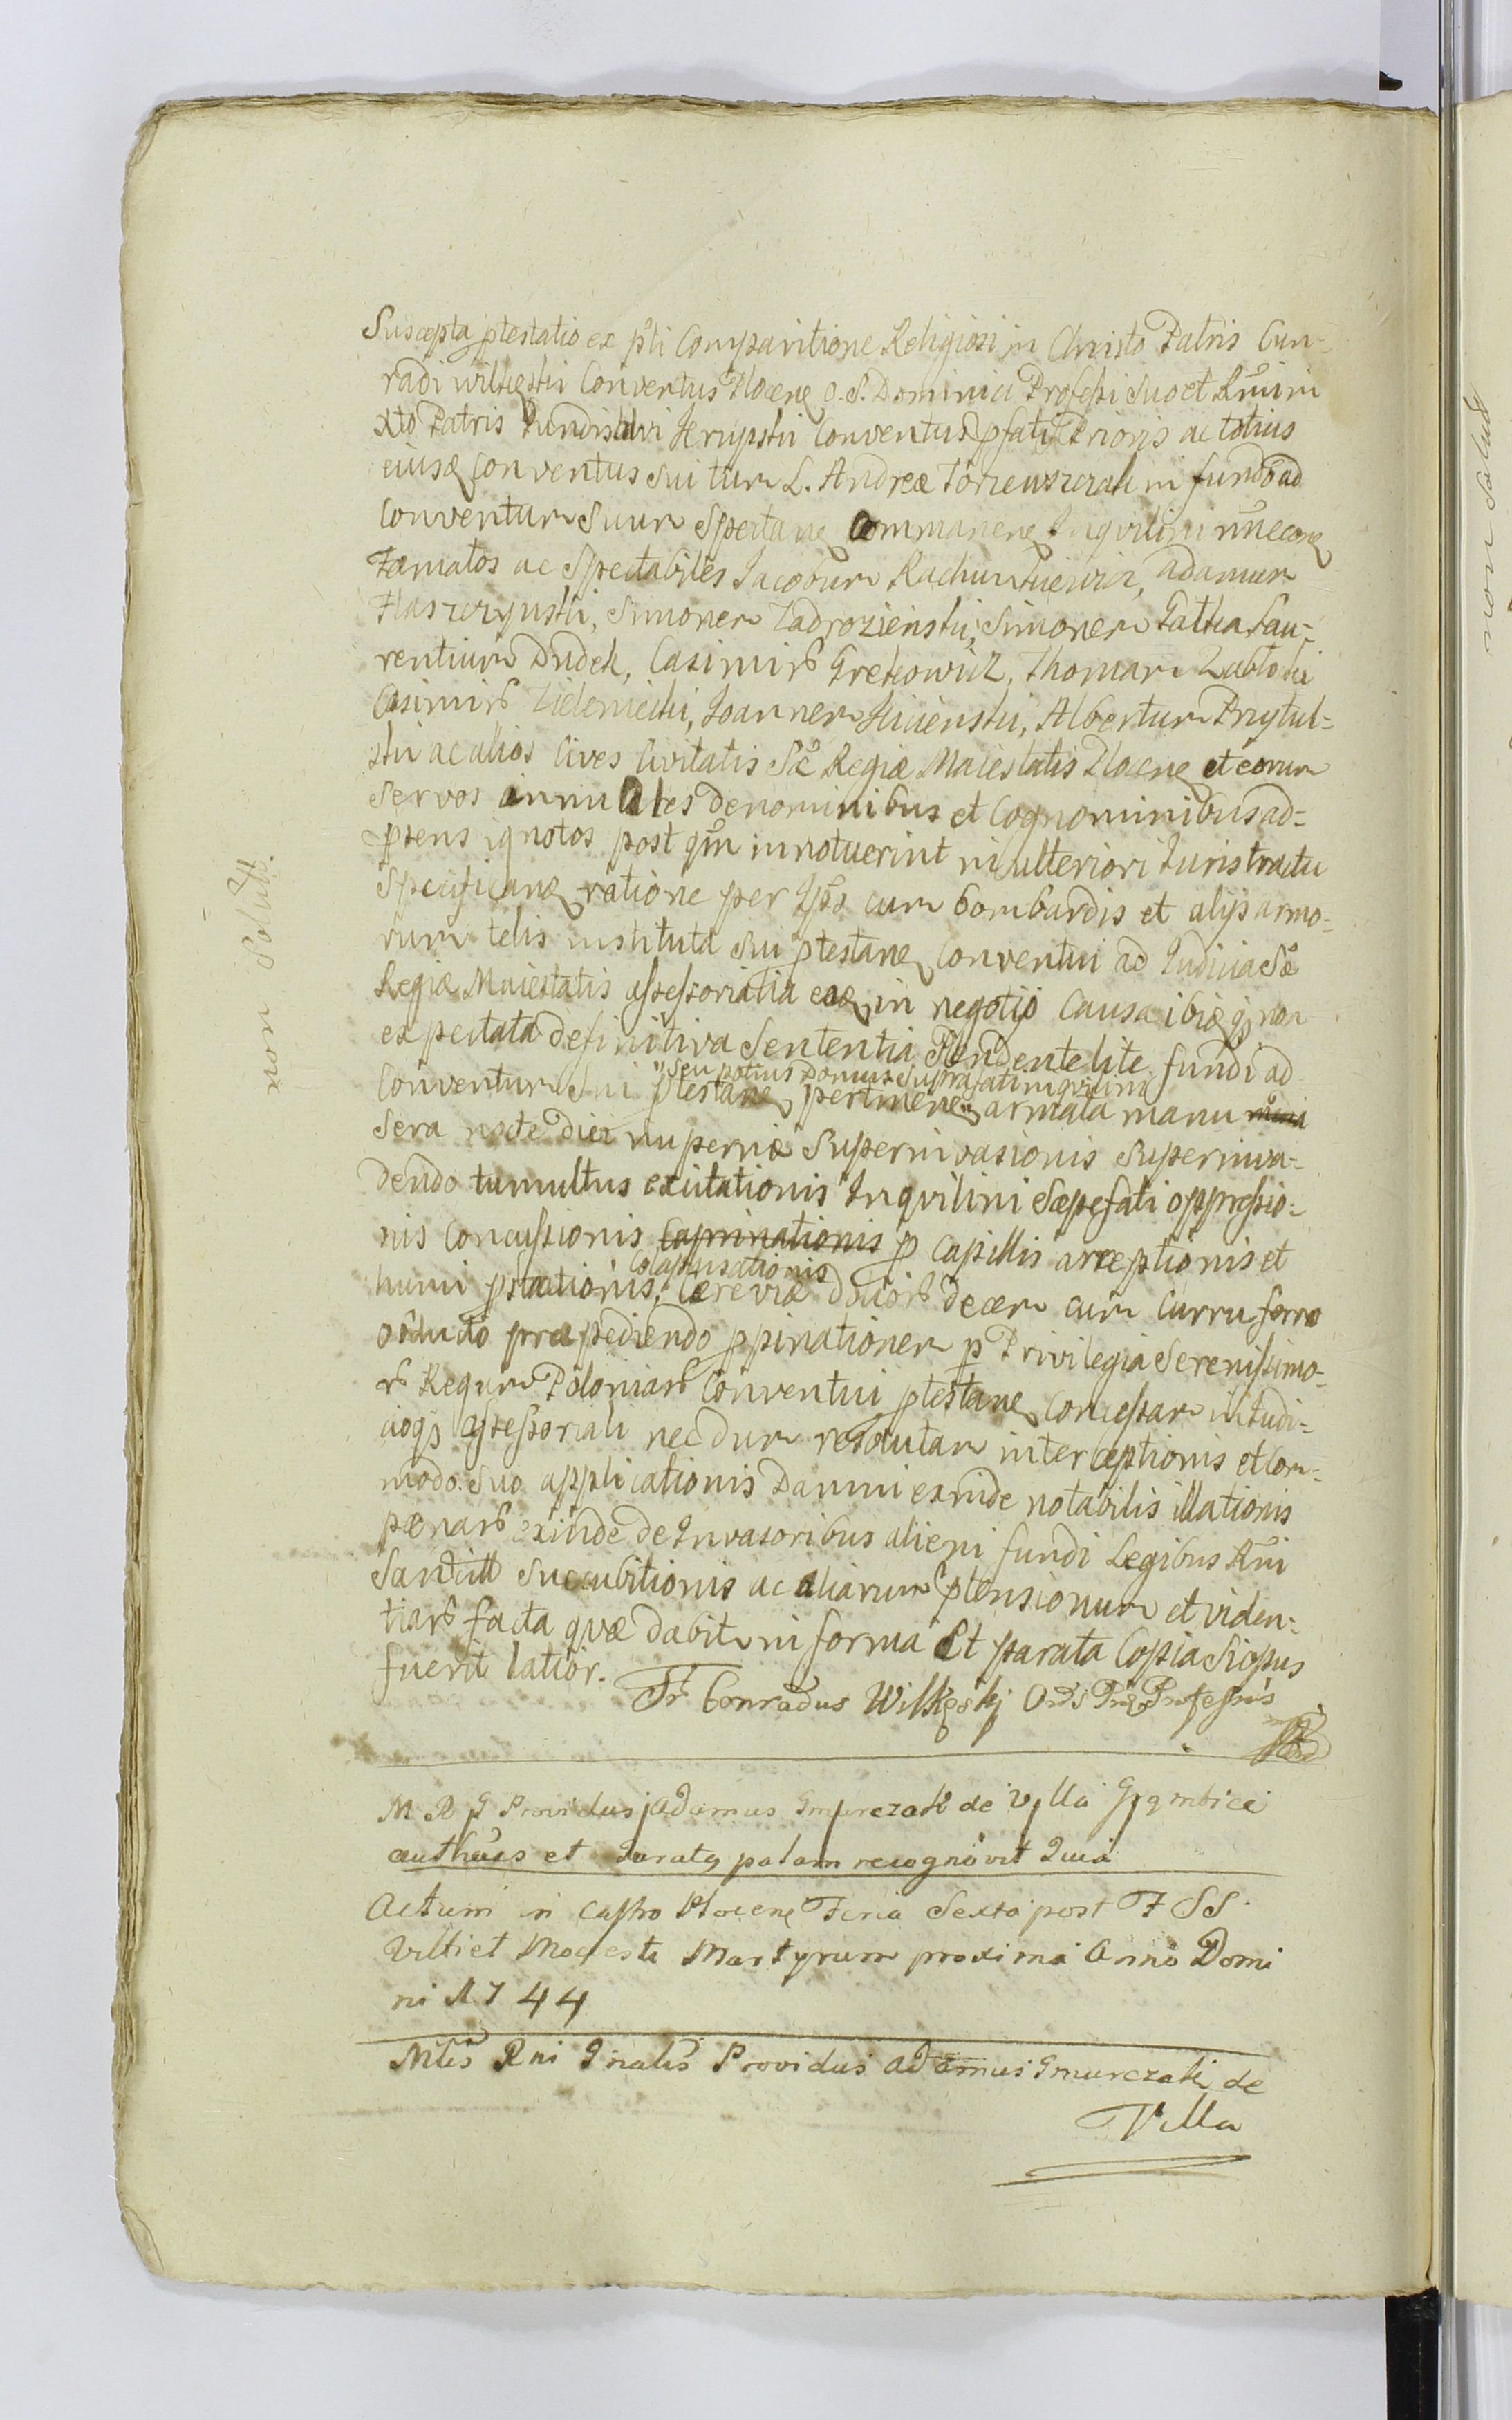 Suscepta ptestatio ex pti Comparitione Religiosi in Christo Patris Cun-
radi wilkęski Conventus Plocen O. S. Dominici Professi Suo et Rmi in
Xto Patris Krupski Conventus pfati Prioris ac totius
eiusq Conventus Sui tum L. Andreæ in fundo ad
Conventum Suum Spectane Commanene Inqvilini nne cora
Famatos ac Spectabiles Jacobum Adamum
Simonem Zadrozienski, Simonem Fatka Lau-
rentium Dudek, Casimirb Grekowicz, Thomam Zabłocki
Casimirb Joannem Albertum Przytul-
ski ac alios Cives Civitatis Sæ Regiæ Maiestatis Plocen et eorum
Servos denominibus et Cognominibus ad-
ptens ignotos post qm innotuerint in ulteriori Juris tractu
Specificane ratione per Ipos cum bombardis et alijs armo-
rum telis instituta Sui ptestane Conventui ad Judicia Sæ
Regiæ Maiestatis assessorialia eaq in negotio Causa ibiq non
expectata definitiva Sententia Pendente lite fundi ad
"Seu potius Domus Suprafati inqvilini
Conventum Sui ptestane pertinene" armata manu
Sera nocte diei nuperniæ Superinvasionis Superinva-
dendo tumultus excitationis Inqvilini Sæpefati oppressio-
nis Concussionis Caprinationis p Capillis arreptionis et
Colaphisationis
humi pstrationis, Cereviæ Decem cum Curru forro
præpediendo ppinationem p Privilegia Serenissimo-
rb Regum Poloniarb Conventui ptestane Concessam in Judi-
cioq assessoriali nec dum resolutam interceptionis et Com-
modo Suo applicationis Damni exinde notabilis illationis
pænarb exinde de Invasoribus alieni fundi Legibus Rni
Sancitt Succubitionis ac aliarum ptensionum et viden-
tiarb facta qvæ dabit in forma Et parata Copia Si opus
fuerit latior.
Fr Conradus Wilkęski Ord Præ Professus
mp
M R G Providus Adamus Gmurczak de Villa
authus et Juraty palam recognovit Quia
Actum in Castro Plocene Feria Sexta post F SS.
Viti et Modesti Martyrum proxima Anno Domi
ni 1744
Mtis Rni Gnalis Providus Adamus Gmurczak de
Villa
non Solutt.
non Solutt